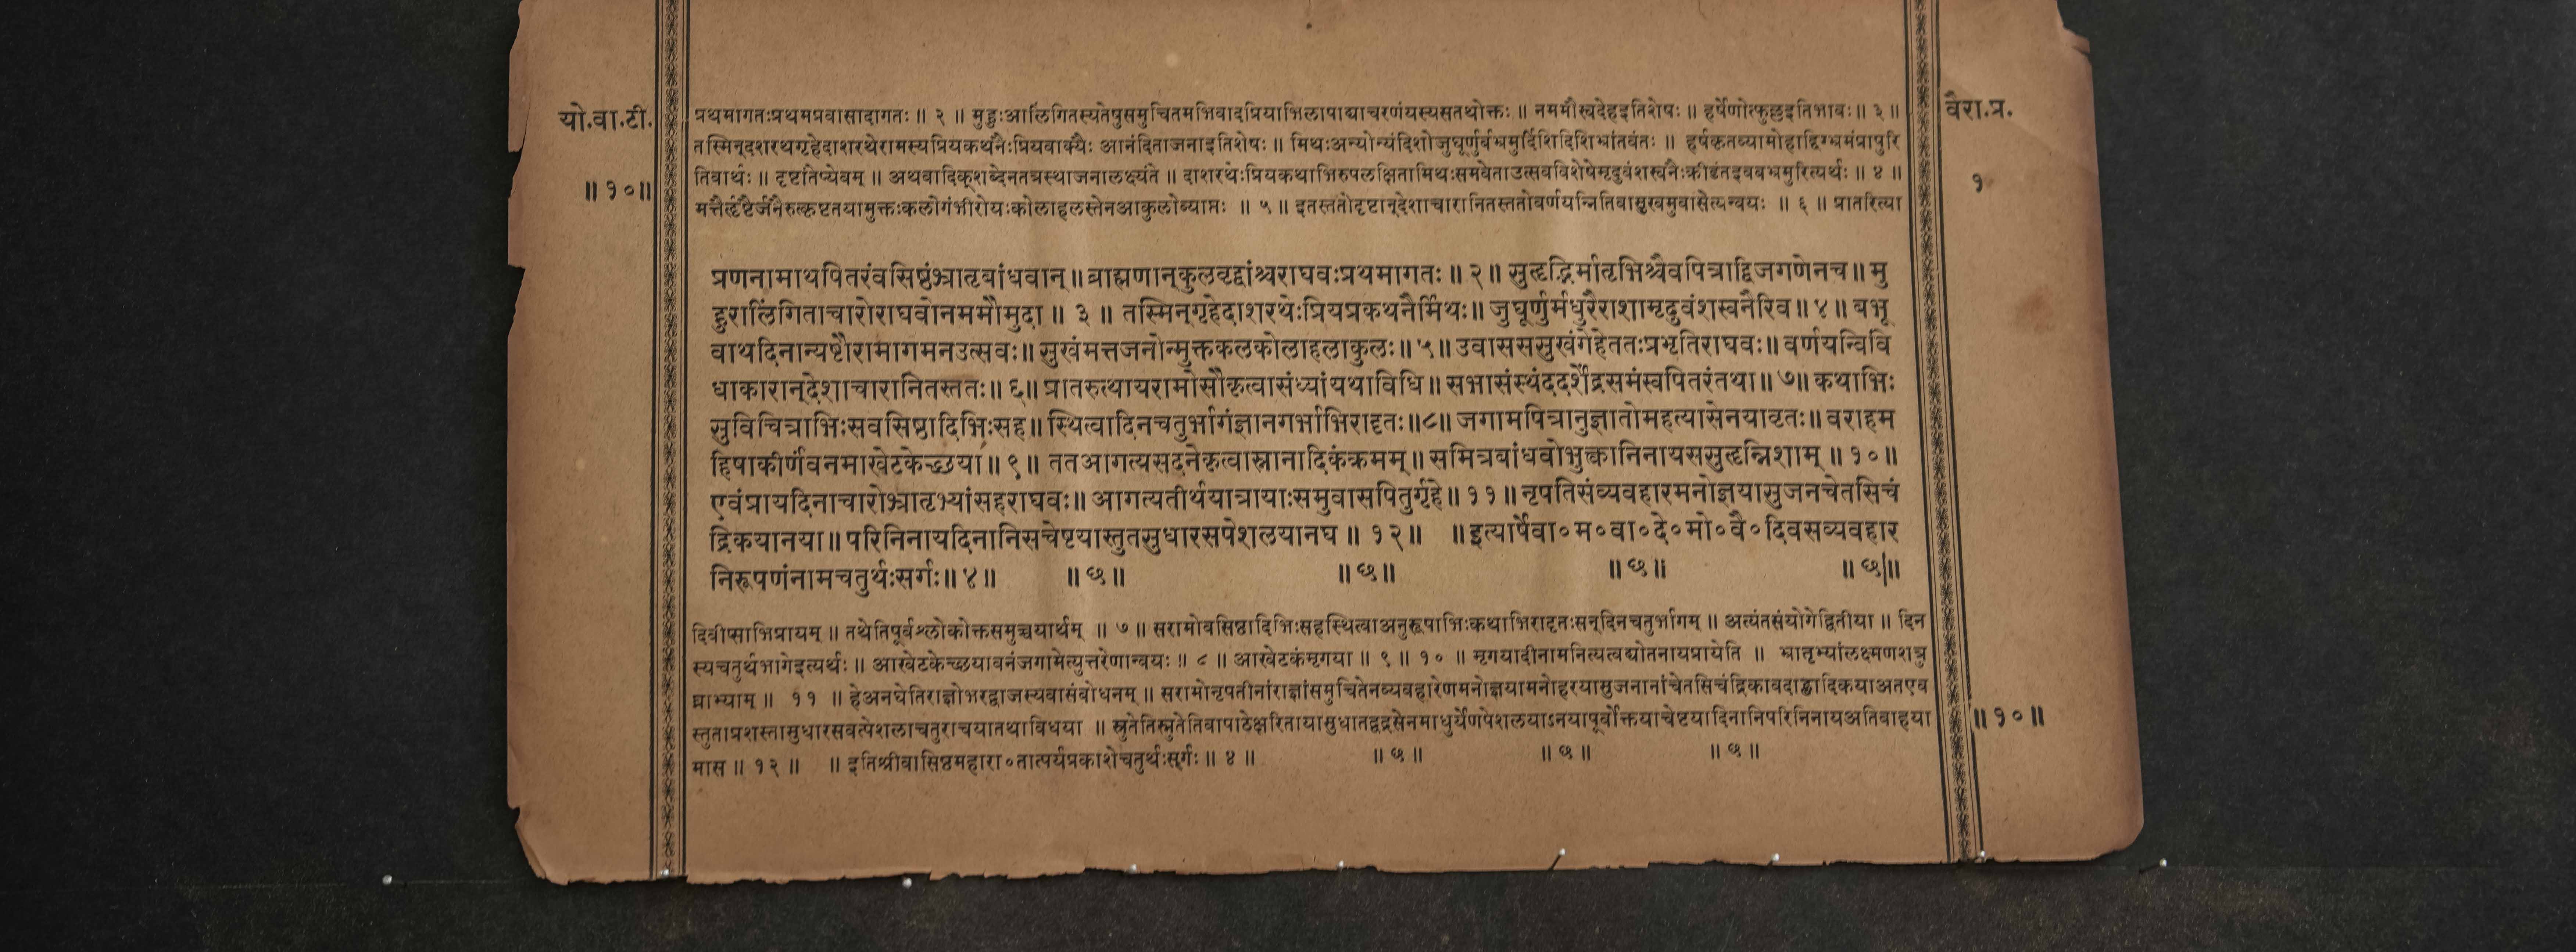 यो.वा.टी.
॥ १० ॥
प्रथमागतःप्रथमप्रवासादागतः ॥ २ ॥ मुहुःआलिंगितस्यतेषुसमुचितमभिवादप्रियाभिलापाद्याचरणंयस्यसतथोक्तः ॥ नममौस्वदेहइतिशेषः ॥ हर्षेणोत्फुल्लइतिभावः ॥ ३ ॥
तस्मिन्दशरथगृहेदाशरथेरामस्यप्रियकथनैःप्रियवाक्यैः आनंदिताजनाइतिशेषः ॥ मिथःअन्योन्यंदिशोजुघूर्णुर्बभ्रमुर्दिशिदिशिभ्रांतवंतः ॥ हर्षकृतव्यामोहाद्दिग्भ्रमंप्रापुरि
तिवार्थः ॥ दृष्टतिप्येवम् ॥ अथवादिक्शब्देनतत्रस्थाजनालक्ष्यंते ॥ दाशरथेःप्रियकथाभिरुपलक्षितामिथःसमवेताउत्सवविशेषेमृदुवंशस्वनैःक्रीडंतइवबभ्रमुरित्यर्थः ॥ ४ ॥
मत्तैर्हृष्टैर्जनैरुत्कृष्टतयामुक्तःकलोगंभीरोयःकोलाहलस्तेनआकुलोव्याप्तः ॥ ५ ॥ इतस्ततोदृष्टान्देशाचारानितस्ततोवर्णयन्नितिवासुखमुवासेत्यन्वयः ॥ ६ ॥ प्रातरित्या
प्रणनामाथपितरंवसिष्ठंभ्रातृबांधवान् ॥ ब्राह्मणान्कुलवृद्धांश्चराघवःप्रथमागतः ॥ २ ॥ सुहृद्भिर्मातृभिश्चैवपित्राद्विजगणेनच ॥ मु
हुरालिंगिताचारोराघवोनममौमुदा ॥ ३ ॥ तस्मिन्गृहेदाशरथेःप्रियप्रकथनैर्मिथः ॥ जुघूर्णुर्मधुरैराशामृदुवंशस्वनैरिव ॥ ४ ॥ बभू
वाथदिनान्यष्टौरामागमनउत्सवः ॥ सुखंमत्तजनोन्मुक्तकलकोलाहलाकुलः ॥ ५ ॥ उवाससुखंगेहेततःप्रभृतिराघवः ॥ वर्णयन्विवि
धाकारान्देशाचारानितस्ततः ॥ ६ ॥ प्रातरुत्थायरामोसौकृत्वासंध्यांयथाविधि ॥ सभासंस्थंददर्शेंद्रसमंस्वपितरंतथा ॥ ७ ॥ कथाभिः
सुविचित्राभिःसवसिष्ठादिभिःसह ॥ स्थित्वादिनचतुर्भागंज्ञानगर्भाभिरादृतः ॥ ८ ॥ जगामपित्रानुज्ञातोमहत्यासेनयावृतः ॥ वराहम
हिषाकीर्णंवनमाखेटकेच्छया ॥ ९ ॥ ततआगत्यसदनेकृत्वास्नानादिकंक्रमम् ॥ समित्रबांधवोभुक्त्वानिनायससुहृन्निशाम् ॥ १० ॥
एवंप्रायदिनाचारोभ्रातृभ्यांसहराघवः ॥ आगत्यतीर्थयात्रायाःसमुवासपितुर्गृहे ॥ ११ ॥ नृपतिसंव्यवहारमनोज्ञयासुजनचेतसिचं
द्रिकयानया ॥ परिनिनायदिनानिसचेष्टयास्तुतसुधारसपेशलयानघ ॥ १२ ॥ ॥ इत्यार्षेवा॰म॰वा॰दे॰मो॰वै॰दिवसव्यवहार
निरूपणंनामचतुर्थःसर्गः ॥ ४ ॥ ॥ छ ॥ ॥ छ ॥ ॥ छ ॥ ॥ छ ॥
दिवीप्साभिप्रायम् ॥ तथेतिपूर्वश्लोकोक्तसमुच्चयार्थम् ॥ ७ ॥ सरामोवसिष्ठादिभिःसहस्थित्वाअनुरूपाभिःकथाभिरादृतःसन्दिनचतुर्भागम् ॥ अत्यंतसंयोगेद्वितीया ॥ दिन
स्यचतुर्थभागेइत्यर्थः ॥ आखेटकेच्छयावनंजगामेत्युत्तरेणान्वयः ॥ ८ ॥ आखेटकंमृगया ॥ ९ ॥ १० ॥ मृगयादीनामनित्यत्वद्योतनायप्रायेति ॥ भ्रातृभ्यांलक्ष्मणशत्रु
घ्नाभ्याम् ॥ ११ ॥ हेअनघेतिराज्ञोभरद्वाजस्यवासंबोधनम् ॥ सरामोनृपतीनांराज्ञांसमुचितेनव्यवहारेणमनोज्ञयामनोहरयासुजनानांचेतसिचंद्रिकावदाह्लादिकयाअतएव
स्तुताप्रशस्तासुधारसवत्पेशलाचतुराचयातथाविधया ॥ स्रुतेतिस्नुतेतिवापाठेक्षरितायासुधातद्वद्रसेनमाधुर्येणपेशलयाऽनयापूर्वोक्तयाचेष्टयादिनानिपरिनिनायअतिवाहया
मास ॥ १२ ॥ ॥ इतिश्रीवासिष्ठमहारा॰तात्पर्यप्रकाशेचतुर्थःसर्गः ॥ ४ ॥ ॥ छ ॥ ॥ छ ॥ ॥ छ ॥
वैरा.प्र.
१
॥ १० ॥